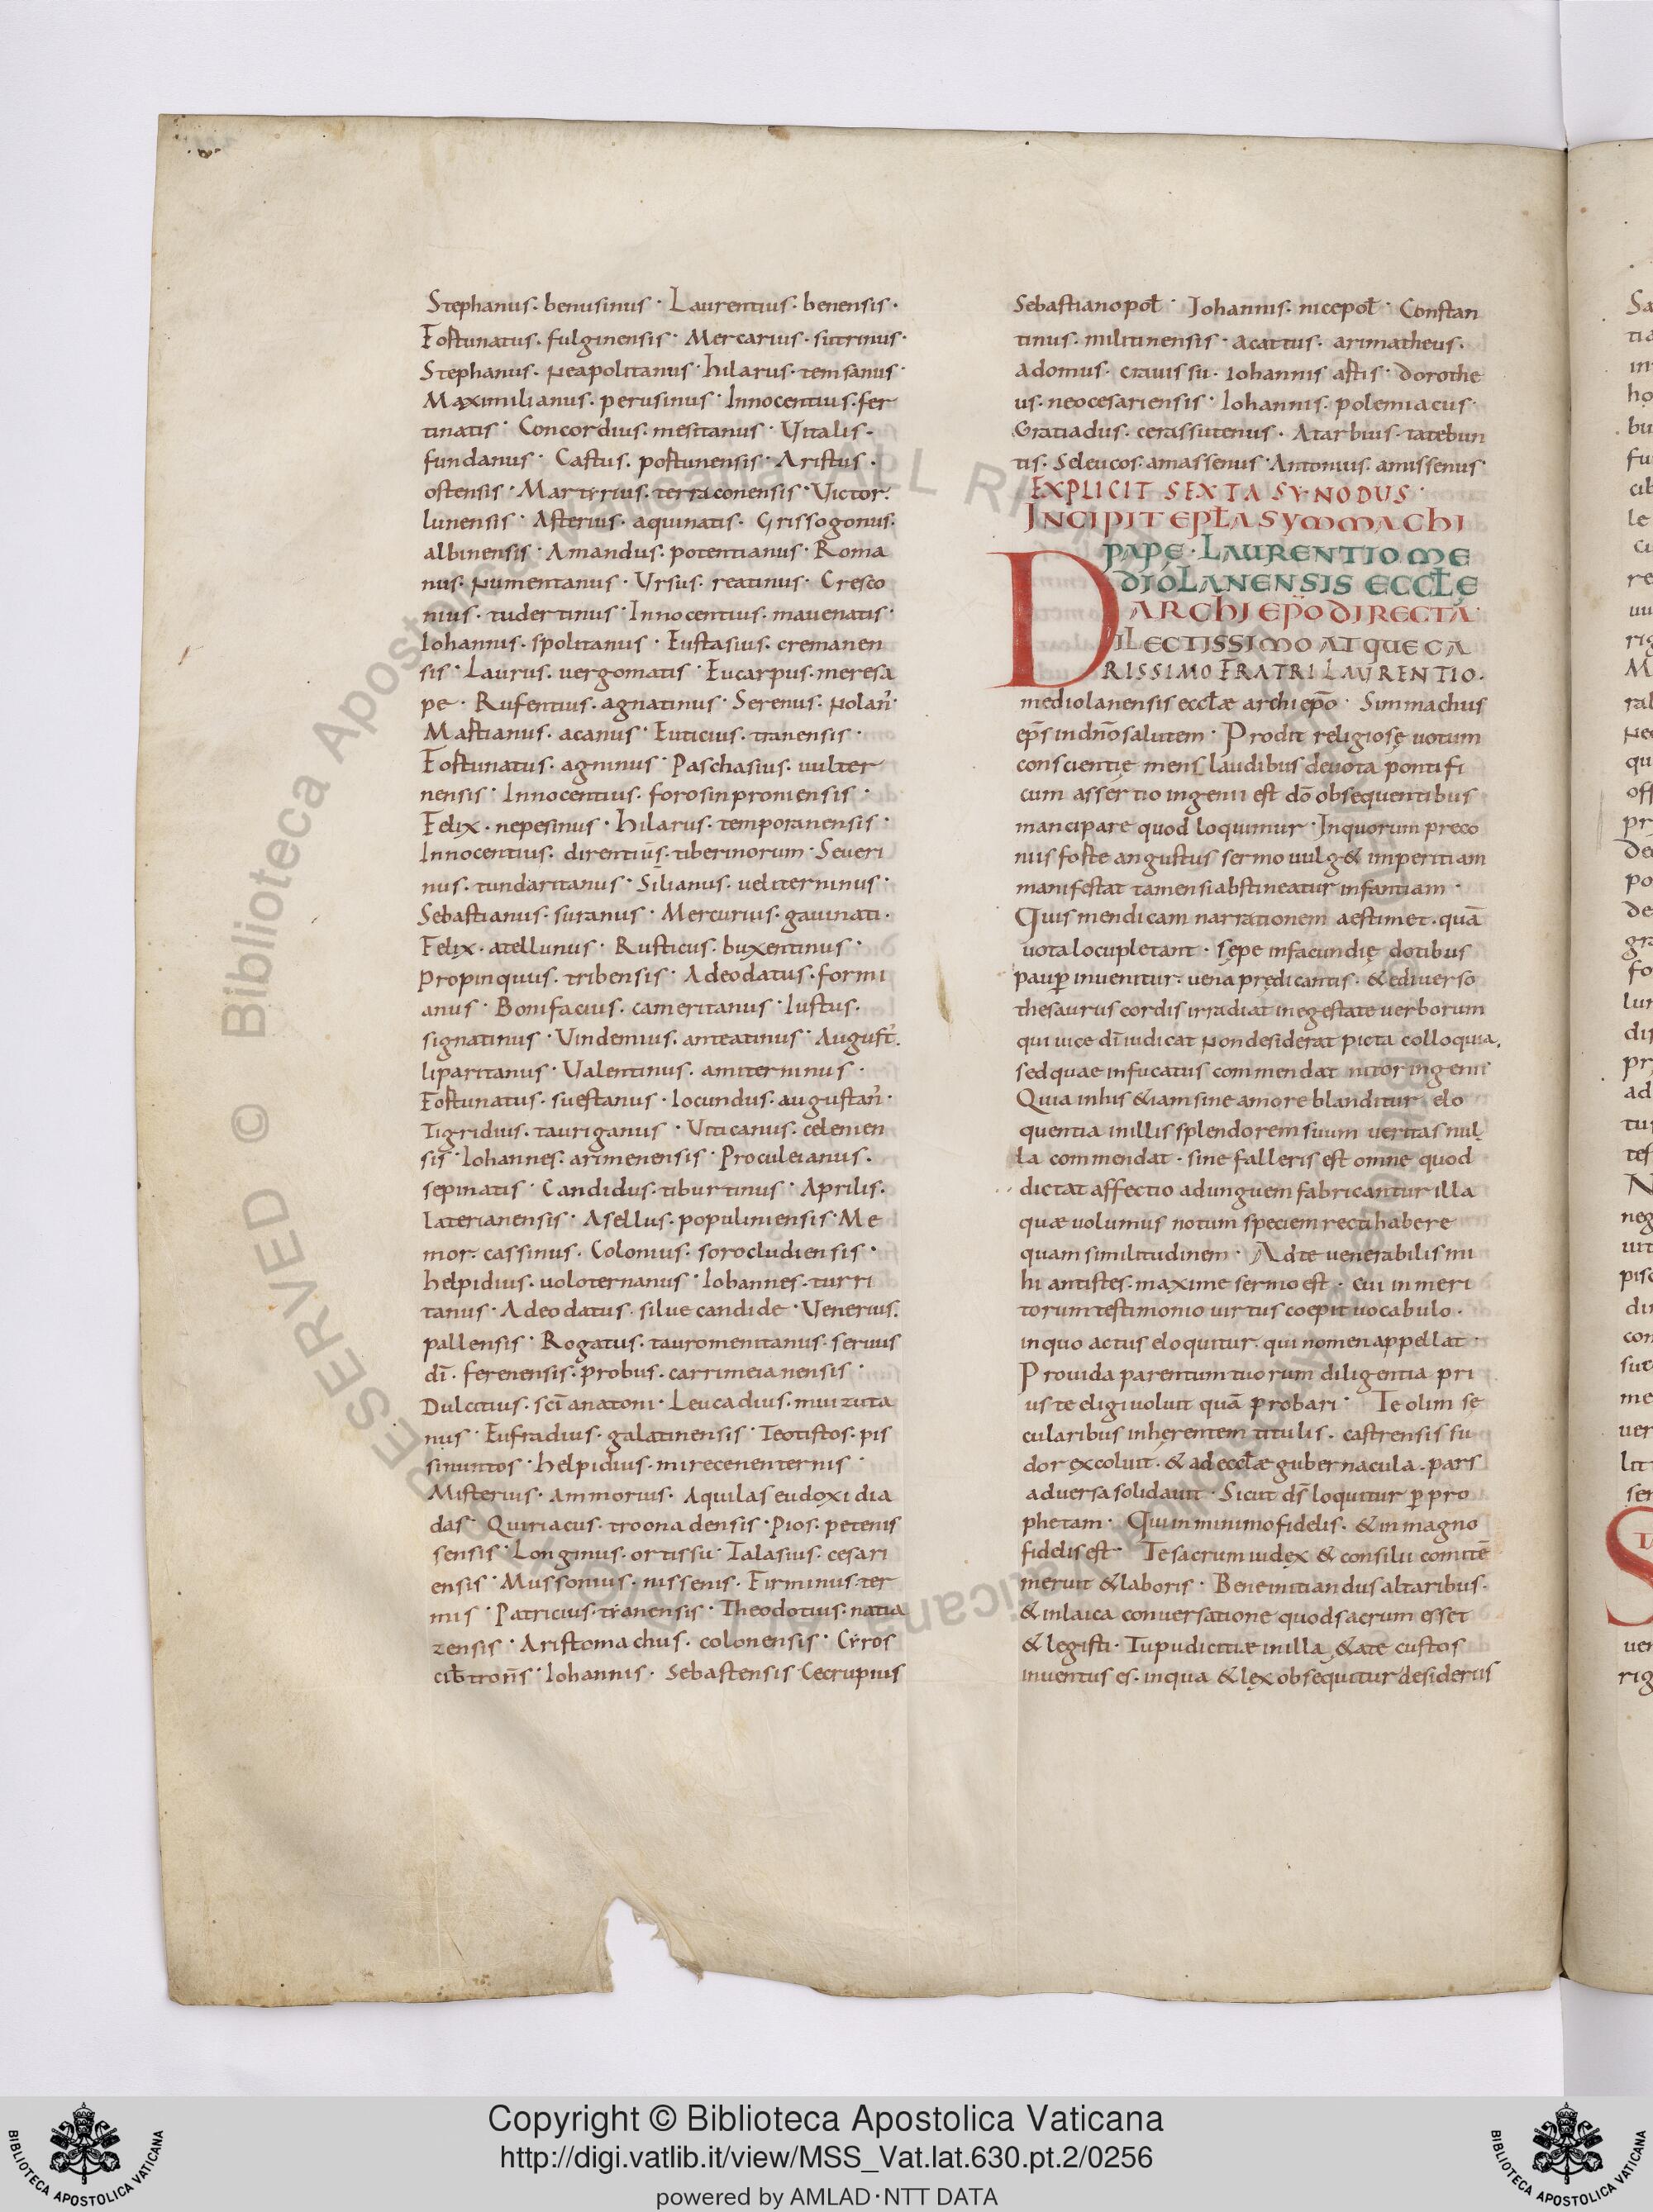 Stephanus. benusinus. Laurentius. benensis.
Fortunatus. fulginensis. Mercarius. sutrinus.
Stephanus. Neapolitanus. hilarus. temsanus.
Maximilianus. perusinus. Innocentius. fer
tinatis. Concordius. mesitanus. Vitalis.
fundanus. Castus. portunensis. Aristus.
ostensis. Martirius. terraconensis. Victor.
lunensis. Asterius. aquinatis. Grissogonus.
albinensis. Amandus. potentianus. Roma
nus. Numentanus. Ursus. reatinus. Cresco
nius. tudertinus. Innocentius. mavenatis.
Iohannus. spolitanus. Eustasius. cremanen
sis. Laurus. vergomatis. Eucarpus. meresa
pe. Rufentius. agnatinus. Serenus. Nolan̄.
Mastianus. acanus. Euticius. tranensis.
Fortunatus. agninus. Paschasius. uulter
nensis. Innocentius. forosinproniensis.
Felix. nepesinus. hilarus. temporanensis.
Innocentius. direntiūs. tiberinorum. Seueri
nus. tundaritanus. Silianus. ueliterninus.
Sebastianus. suranus. Mercurius. gauinati.
Felix. atellunus. Rusticus. buxentinus.
propinquus. tribensis. Adeodatus. formi
anus. Bonifacius. cameritanus. Iustus.
signatinus. Uindemius. anteatinus. August̄.
liparitanus. Ualentinus. amiterninus.
Fortunatus. suestanus. Iocundus. augustan̄.
Tigridius. tauriganus. Uiticanus. celenien
sis. Iohannes. arimenensis. Proculeianus.
sepinatis. Candidus. tiburtinus. Aprilis.
Laterianensis. Asellus. populiniensis. Me
mor. cassinus. Colonius. sorocludiensis.
helpidius. uoloternanus. Iohannes. turri
tanus. Adeodatus. silue candide. Venerius.
pallensis. Rogatus. tauromenitanus. seruus
dī. ferenensis. probus. carrimeianensis.
Dulcitius. sc̄i anatoni. Leucadius. muizuta
nus. Eufradius. galatinensis. Teotistos. pis
sinuntos. helpidius. mirecenenternis.
Misterius. ammorius. Aquilas eudoxi dia
das. Quiriacus. troonadensis. Pios. petenis
sensis. Longinus. ortissu. Talasius. cesari
ensis. Mussonius. nissenis. Firminus. ter
mis. Patricius. tranensis. Theodotius. natia
zensis. Aristomachus. colonensis. Cyros
cib̄ tron̄s. Iohannis. Sebastensis Cecrupius
Sebastianopol̄. Johannis. nicepol̄. Constan
tinus. militinensis. acattus. arimatheus.
Adomus. ciauissu. Iohannis astis. dorothe
us. neocesariensis. Iohannis. polemiacus.
Gratiadus. cerassutenus. Atarbius. tatebun
tis. Seleucos. amassenus. Antonius. amissenus.
EXPLICIT SEXTA SYNODUS.
INCIPIT EPŁA SYMMACHI
PAPE. LAURENTIO ME
DIOLANENSIS ECCŁĘ
ARCHIEP̄O DIRECTA.
DILECTISSIMO ATQUE CA
RISSIMO FRATRI LAURENTIO.
mediolanensis eccłæ archiep̄o. Simmachus
ep̄s in dn̄o salutem. Prodit religiosę uotum
conscientię mens laudibus deuota pontifi
cum assertio ingenii est dō obsequentibus
mancipare quod loquimur. Inquorum preco
niis forte angustus sermo uulg& imperitiam
manifestat tamensi abstineatur infantiam.
Quis mendicam narrationem aestimet. quā
uota locupletant. sępe infacundię dotibus
paup̄ inuenitur. uena prędicantis. & ediuerso
thesaurus cordis irradiat inegestate uerborum
qui uice dī iudicat Non desiderat picta colloquia,
sed quae infucatus commendat nitor ingenii
Quia inhis &iam sine amore blanditur elo
quentia inillis splendorem suum ueritas nul
la commendat. sine falleris est omne quod
dictat affectio adunguem fabricantur illa
quæ uolumus notum speciem recti habere
quam similitudinem. Ad te uenerabilis mi
hi antistes. maxime sermo est. cui inmeri
torum testimonio uirtus coepit uocabulo.
inquo actus eloquitur. qui nomen appellat.
Prouida parentum tuorum diligentia pri
us te eligi uoluit quā probari. Te olim sę
cularibus inhęrentem titulis. castrensis su
dor excoluit. & ad eccłæ gubernacula. pars
aduersa solidauit. Sicut dn̄s loquitur p̄ pro
phetam. Qui in minimo fidelis. & in magno
fidelis est. Te sacrum iudęx & consilii comitē
meruit & laboris. Bene initiandus altaribus.
& inlaica conuersatione quod sacrum esset
& legisti. Tu pudicitiæ in illa &ate custos
inuentus es. inqua & lęx obsequitur desideriis
© Biblioteca Apostolica Vaticana ALL RIGHTS RESERVED
Copyright © Biblioteca Apostolica Vaticana
http://digi.vatlib.it/view/MSS_Vat.lat.630.pt.2/0256
powered by AMLAD·NTT DATA
BIBLIOTECA APOSTOLICA VATICANA
BIBLIOTECA APOSTOLICA VATICANA